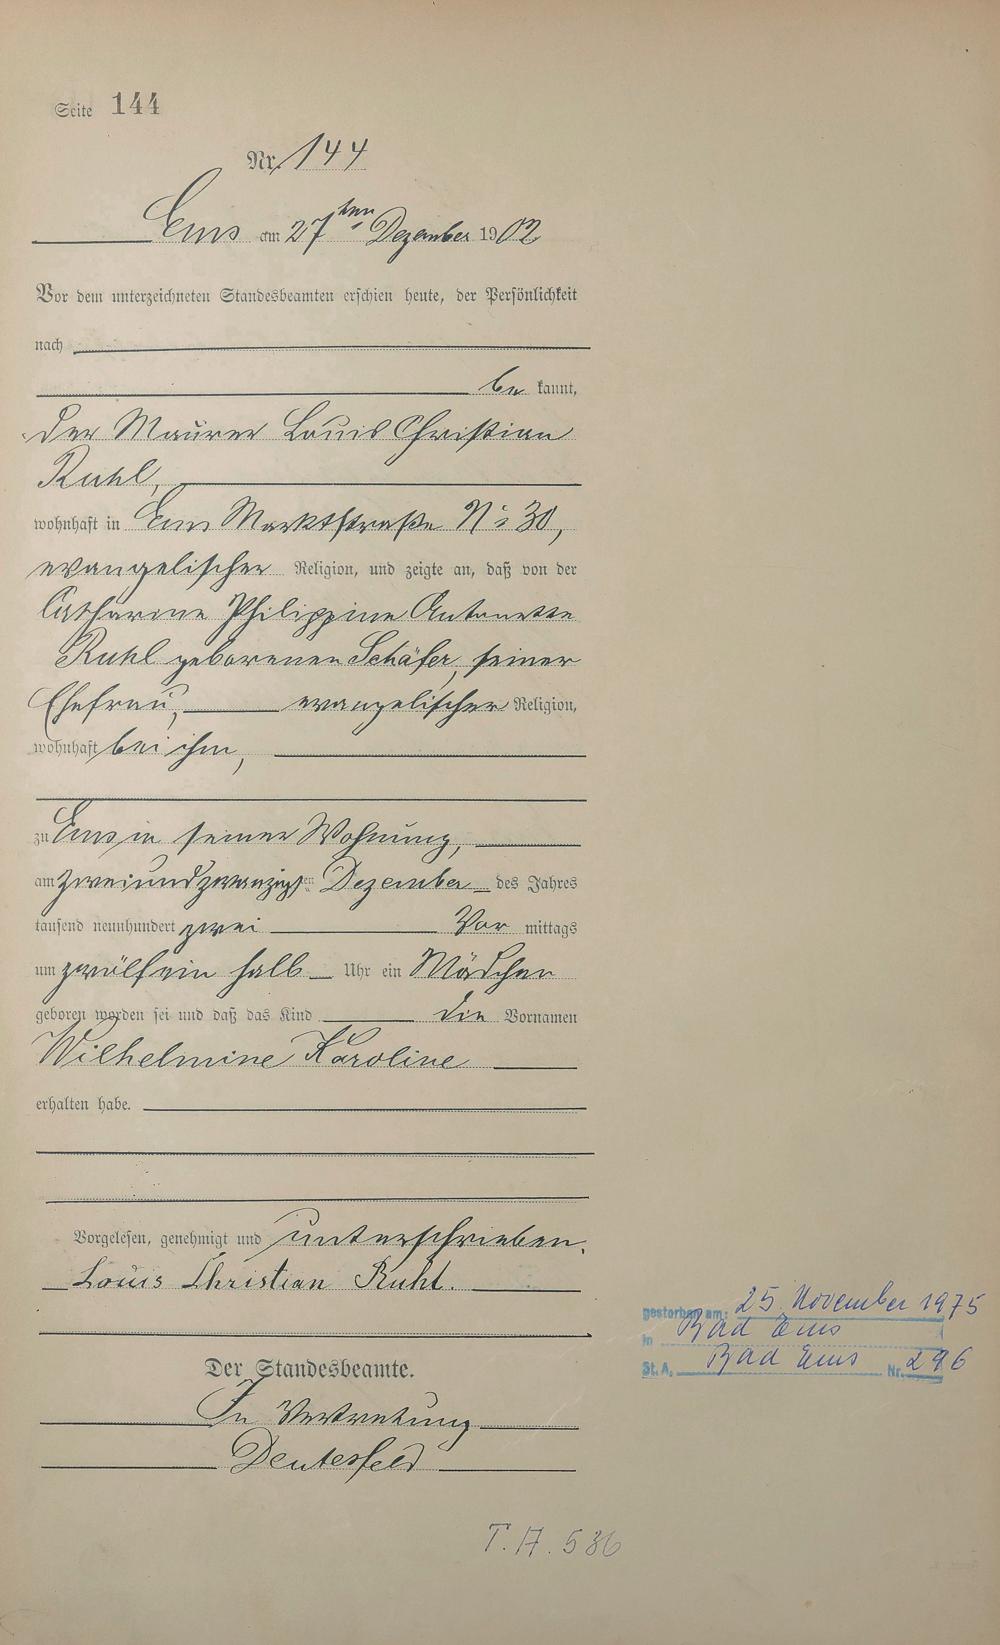 Seite 144
Nr. 144
Ems am 27ten Dezember 1902
Vor dem unterzeichneten Standesbeamten erschien heute, der Persönlichkeit
nach
be kannt,
der Maurer Louis Christian
Ruhl,
wohnhaft in Ems Marktstraße No 30,
evangelischer Religion, und zeigte an, daß von der
Catharine Philippine Antonette
Ruhl geborenen Schäfer, seiner
Ehefrau, evangelischer Religion,
wohnhaft bei ihm,
zu Ems in seiner Wohnung,
am zweiundzwanzigsten Dezember des Jahres
tausend neunhundert zwei Vor mittags
um zwölfein halb Uhr ein Mädchen
geboren worden sei und daß das Kind die Vornamen
Wilhelmine Karoline
erhalten habe.
Vorgelesen, genehmigt und unterschrieben.
Louis Christian Ruhl.
gestorben am: 25. November 1975
in Bad Ems
St. A. Bad Ems Nr. 296
Der Standesbeamte.
In Vertretung
Deutesfeld
T. A. 536